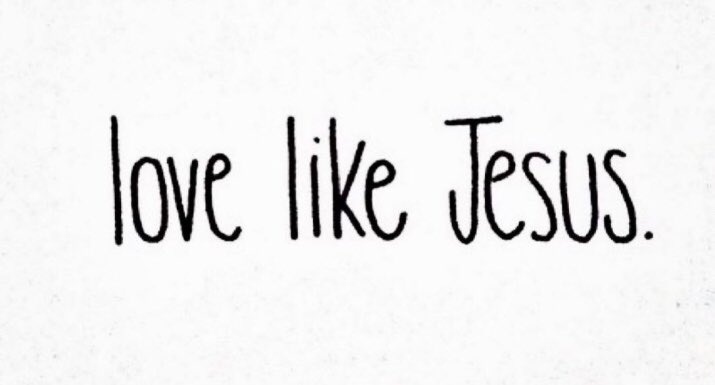 love like Jesus.